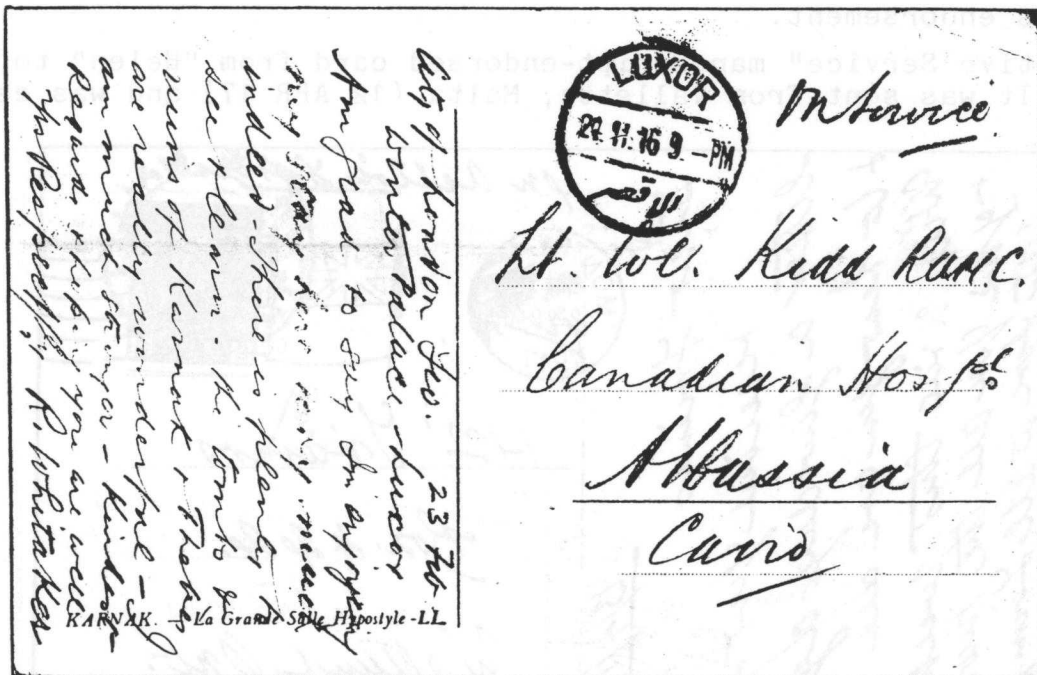 endorsement.
Service"
-endorsed card from
It was sent from
LUXOR
27.11.16 9.-PM
الاقصر
On Service
Lt. Coll. Kidd RAMC
Canadian Hospl
Abbassia
Cairo
City of London Yeo. 23
Winter Palace Luxor
I'm glad to say I'm enjoying
my stay here very much
indeed, there's plenty to
see in the tombs &
ruins of Karnak & Thebes
are really wonderful –
am much stronger – kindest
regards hope you are well
Yrs Respectfly R. Whitaker
KARNAK. — La Grande Salle Hypostyle - LL